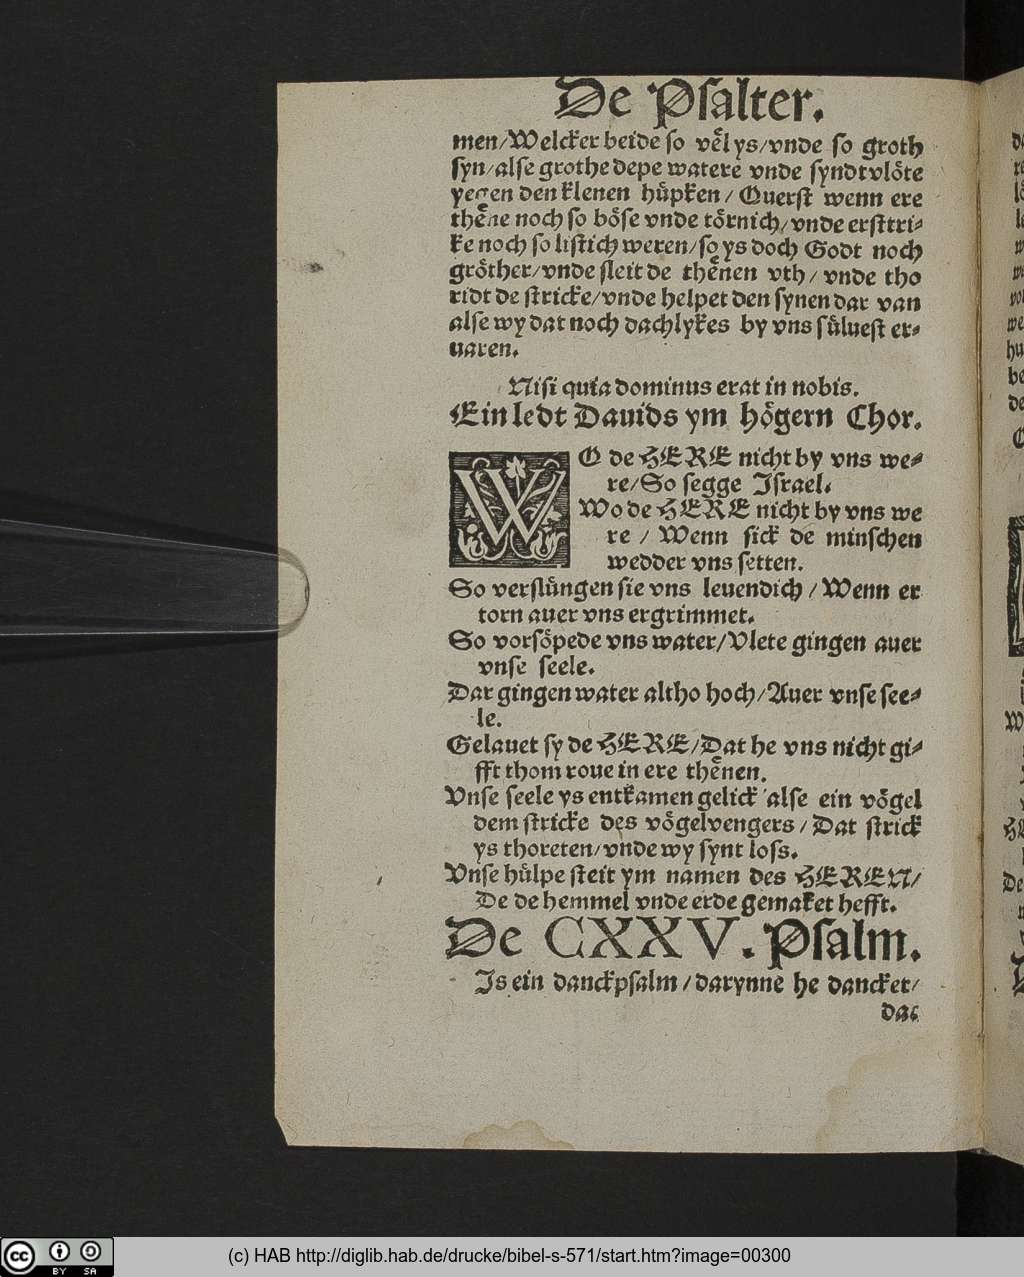 De Psalter.
men/Welcker beide so vẽl ys/vnde so groth
syn/alse grothe depe watere vnde syndtvlöte
yegen den klenen hüpken/ Querst wenn ere
thẽne noch so böse vnde törnich/vnde ersttri⸗
ke noch so listich weren/so ys doch Godt noch
gröther/vnde sleit de thẽnen vth/ vnde tho
ridt de stricke/vnde helpet den synen dar van
alse wy dat noch dachlykes by vns süluest er⸗
uaren.
Nisi quia dominus erat in nobis.
Ein ledt Dauids ym högern Chor.
WO de HERE nicht by vns we⸗
re/So segge Israel.
Wo de HERE nicht by vns we
re / Wenn sick de minschen
wedder vns setten.
So verslüngen sie vns leuendich / Wenn er
torn auer vns ergrimmet.
So vorsöpede vns water/Vlete gingen auer
vnse seele.
Dar gingen water altho hoch/Auer vnse see⸗
le.
Gelauet sy de HERE/Dat he vns nicht gi⸗
fft thom roue in ere thẽnen.
Vnse seele ys entkamen gelick alse ein vögel
dem stricke des vögelvengers / Dat strick
ys thoreten/vnde wy synt loss.
Vnse hülpe steit ym namen des HEREN/
De de hemmel vnde erde gemaket hefft.
De CXXV. Psalm.
Is ein danckpsalm/darynne he dancket/
dat
(c) HAB http://diglib.hab.de/drucke/bibel-s-571/start.htm?image=00300
cc BY SA